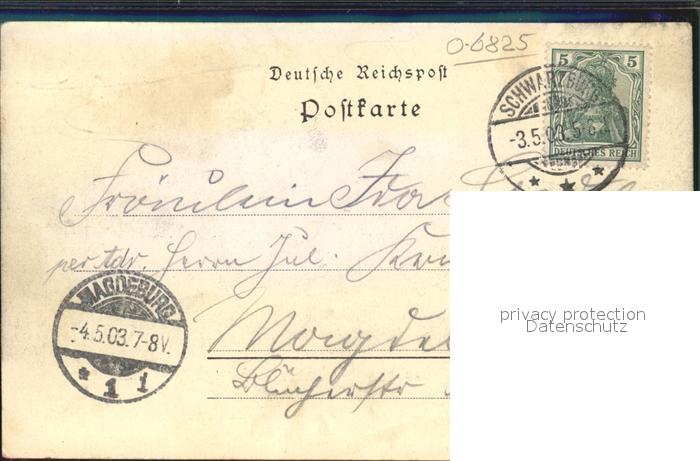 O-6825
Deutsche Reichspost
Postkarte
5 5
DEUTSCHES REICH
SCHWARZBURG
-3.5.03.5-6
Fräulein
per Adr. Herrn Jul.
MAGDEBURG
-4.5.03.7-8V.
* 1 1
Magde
Blücherstr
privacy protection
Datenschutz